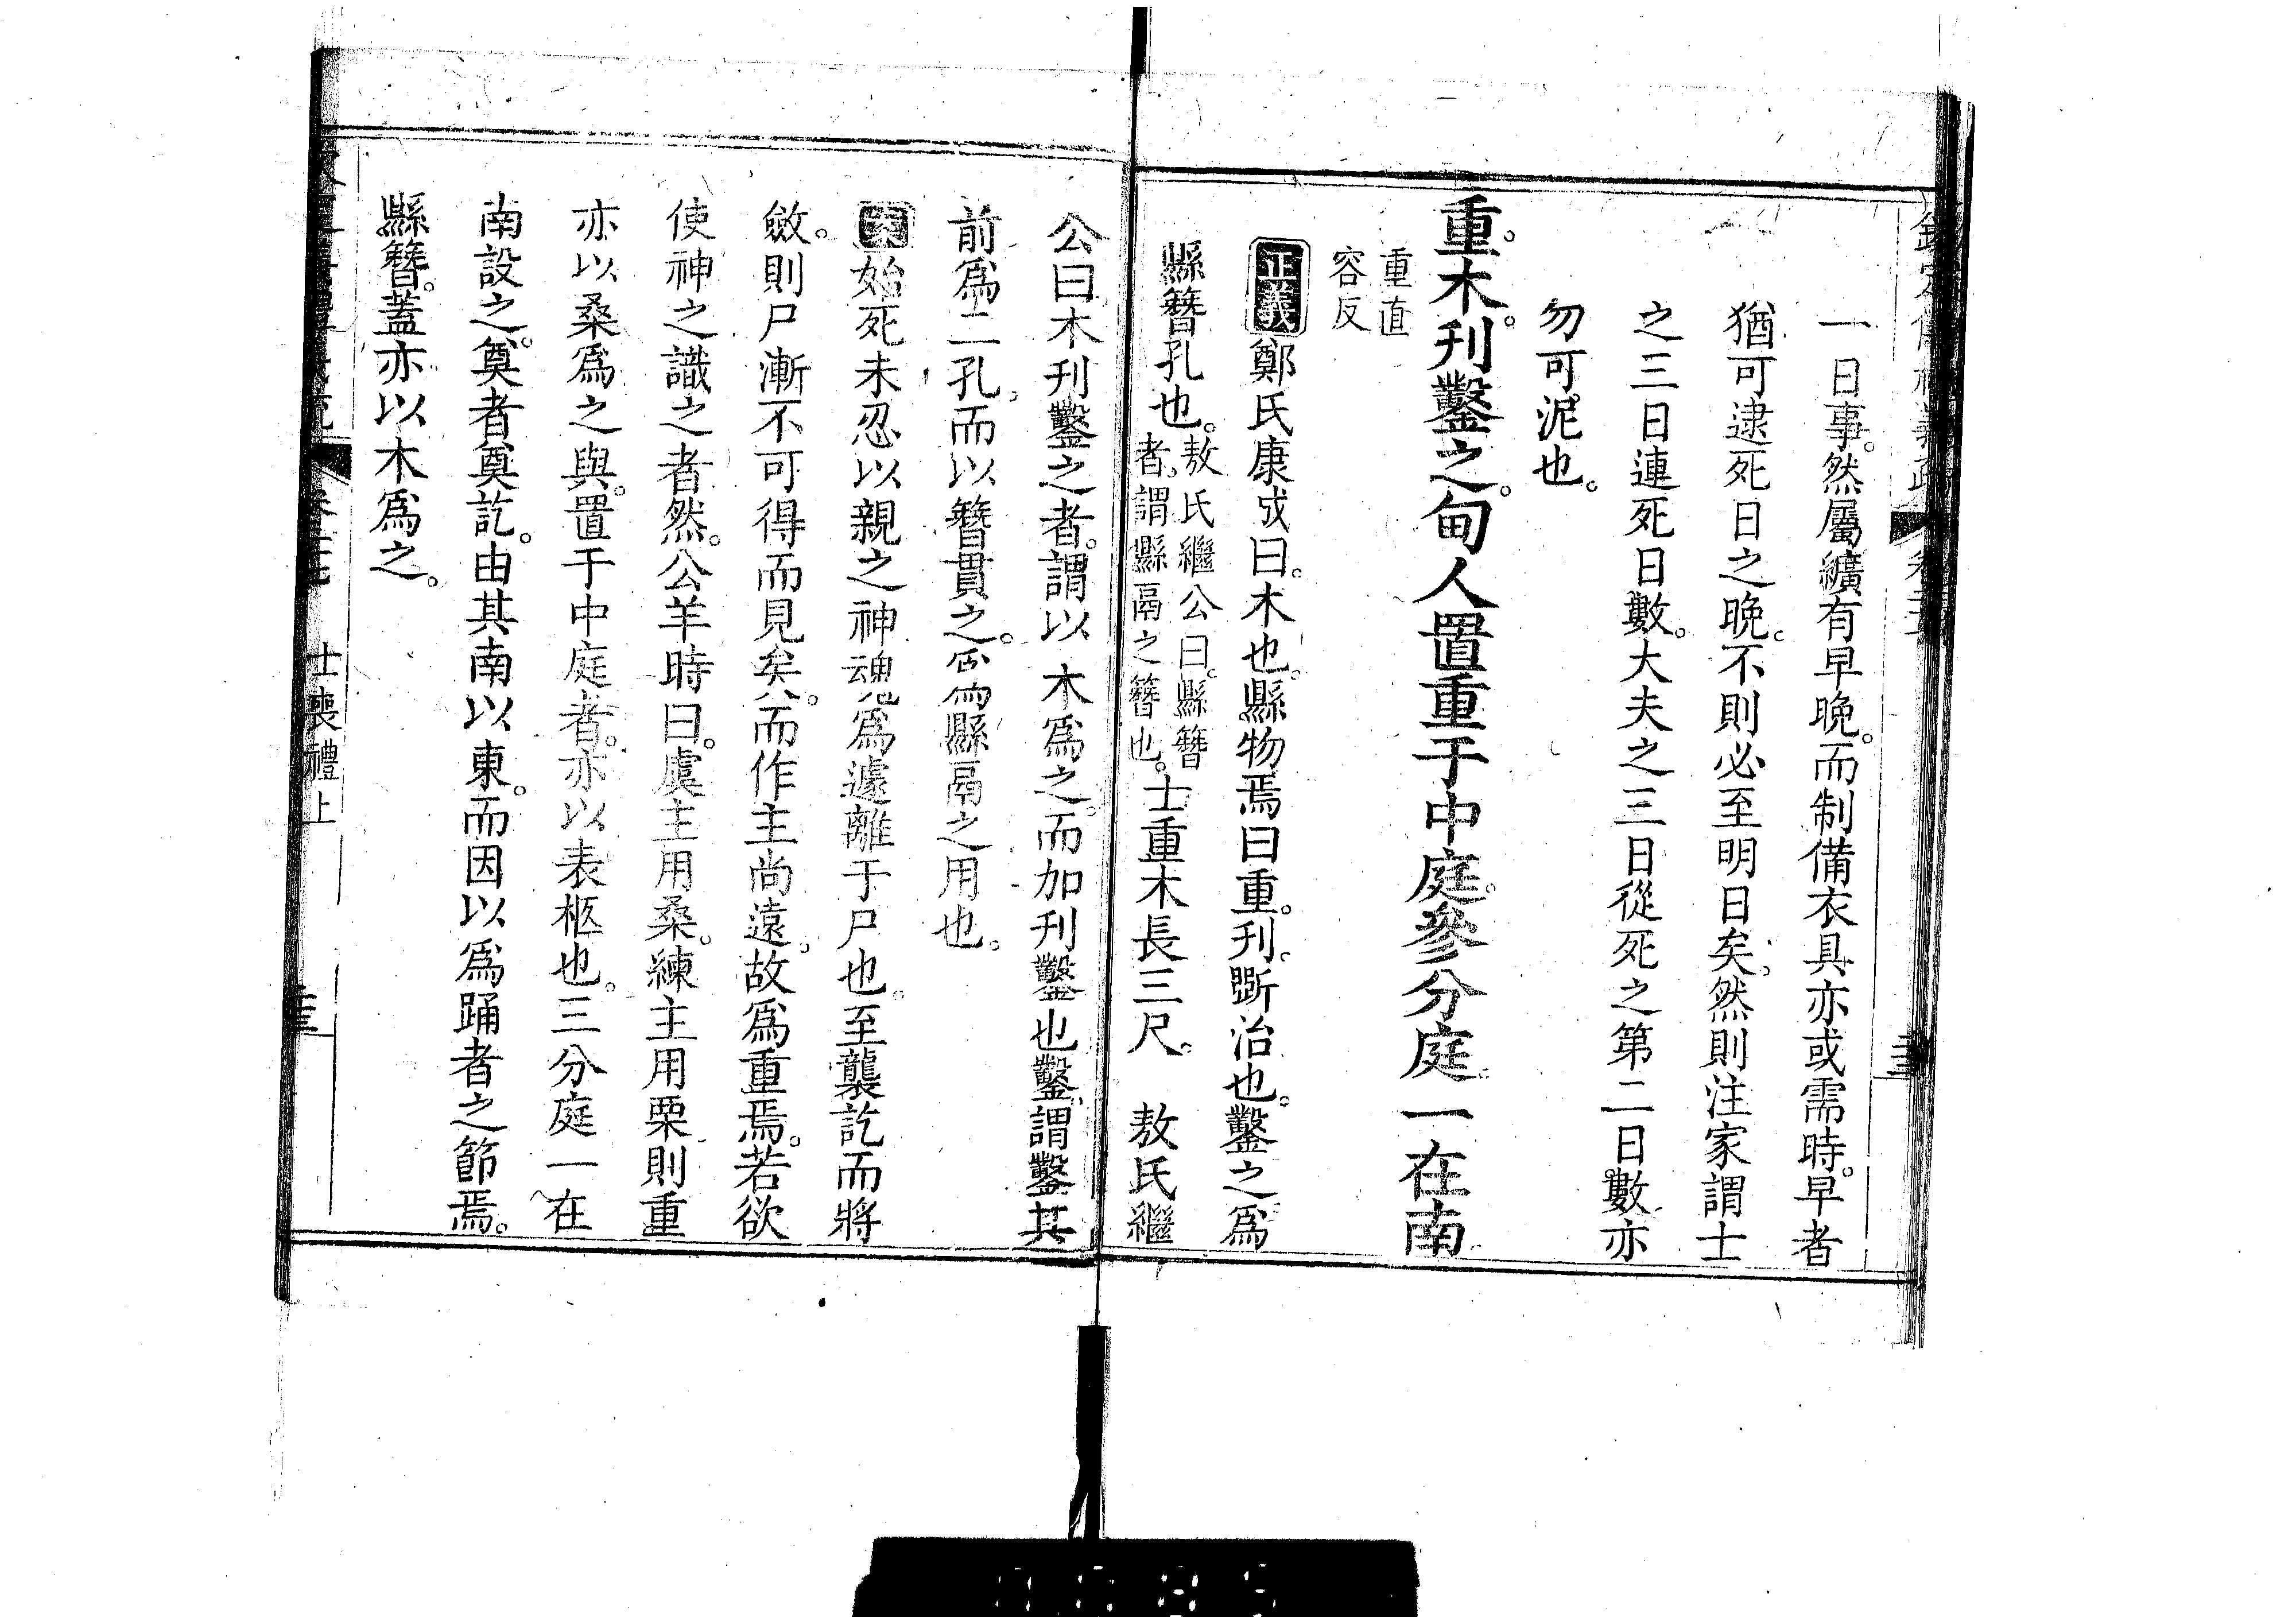 一日事。然屬纊有早晚。而制備衣具亦或需時。早者
猶可逮死日之晚。不則必至明日矣。然則注家謂士
之三日連死日數。大夫之三日從死之第二日數。亦
勿可泥也。
重。木。刋鑿之。甸人置重于中庭。參分庭。一在南
重直
容反
正義鄭氏康成曰。木也。縣物焉曰重。刋。斲治也。鑿之。爲
縣簪孔也。
敖氏繼公曰。縣簪
者。謂縣鬲之簪也。
士重木長三尺。 敖氏繼
公曰木刋鑿之者。謂以木爲之。而加刋鑿也鑿。謂鑿其
前爲二孔。而以簪貫之。爲縣鬲之用也。
案始死未忍以親之神魂爲遽離于尸也。至襲訖而將
斂。則尸漸不可得而見矣。而作主尚遠。故爲重焉。若欲
使神之識之者然。公羊時曰。虞主用桑。練主用栗則重
亦以桑爲之與。置于中庭者。亦以表柩也。三分庭一在
南設之。奠者奠訖。由其南以東。而因以爲踊者之節焉。
縣簪。蓋亦以木爲之。
士喪禮上